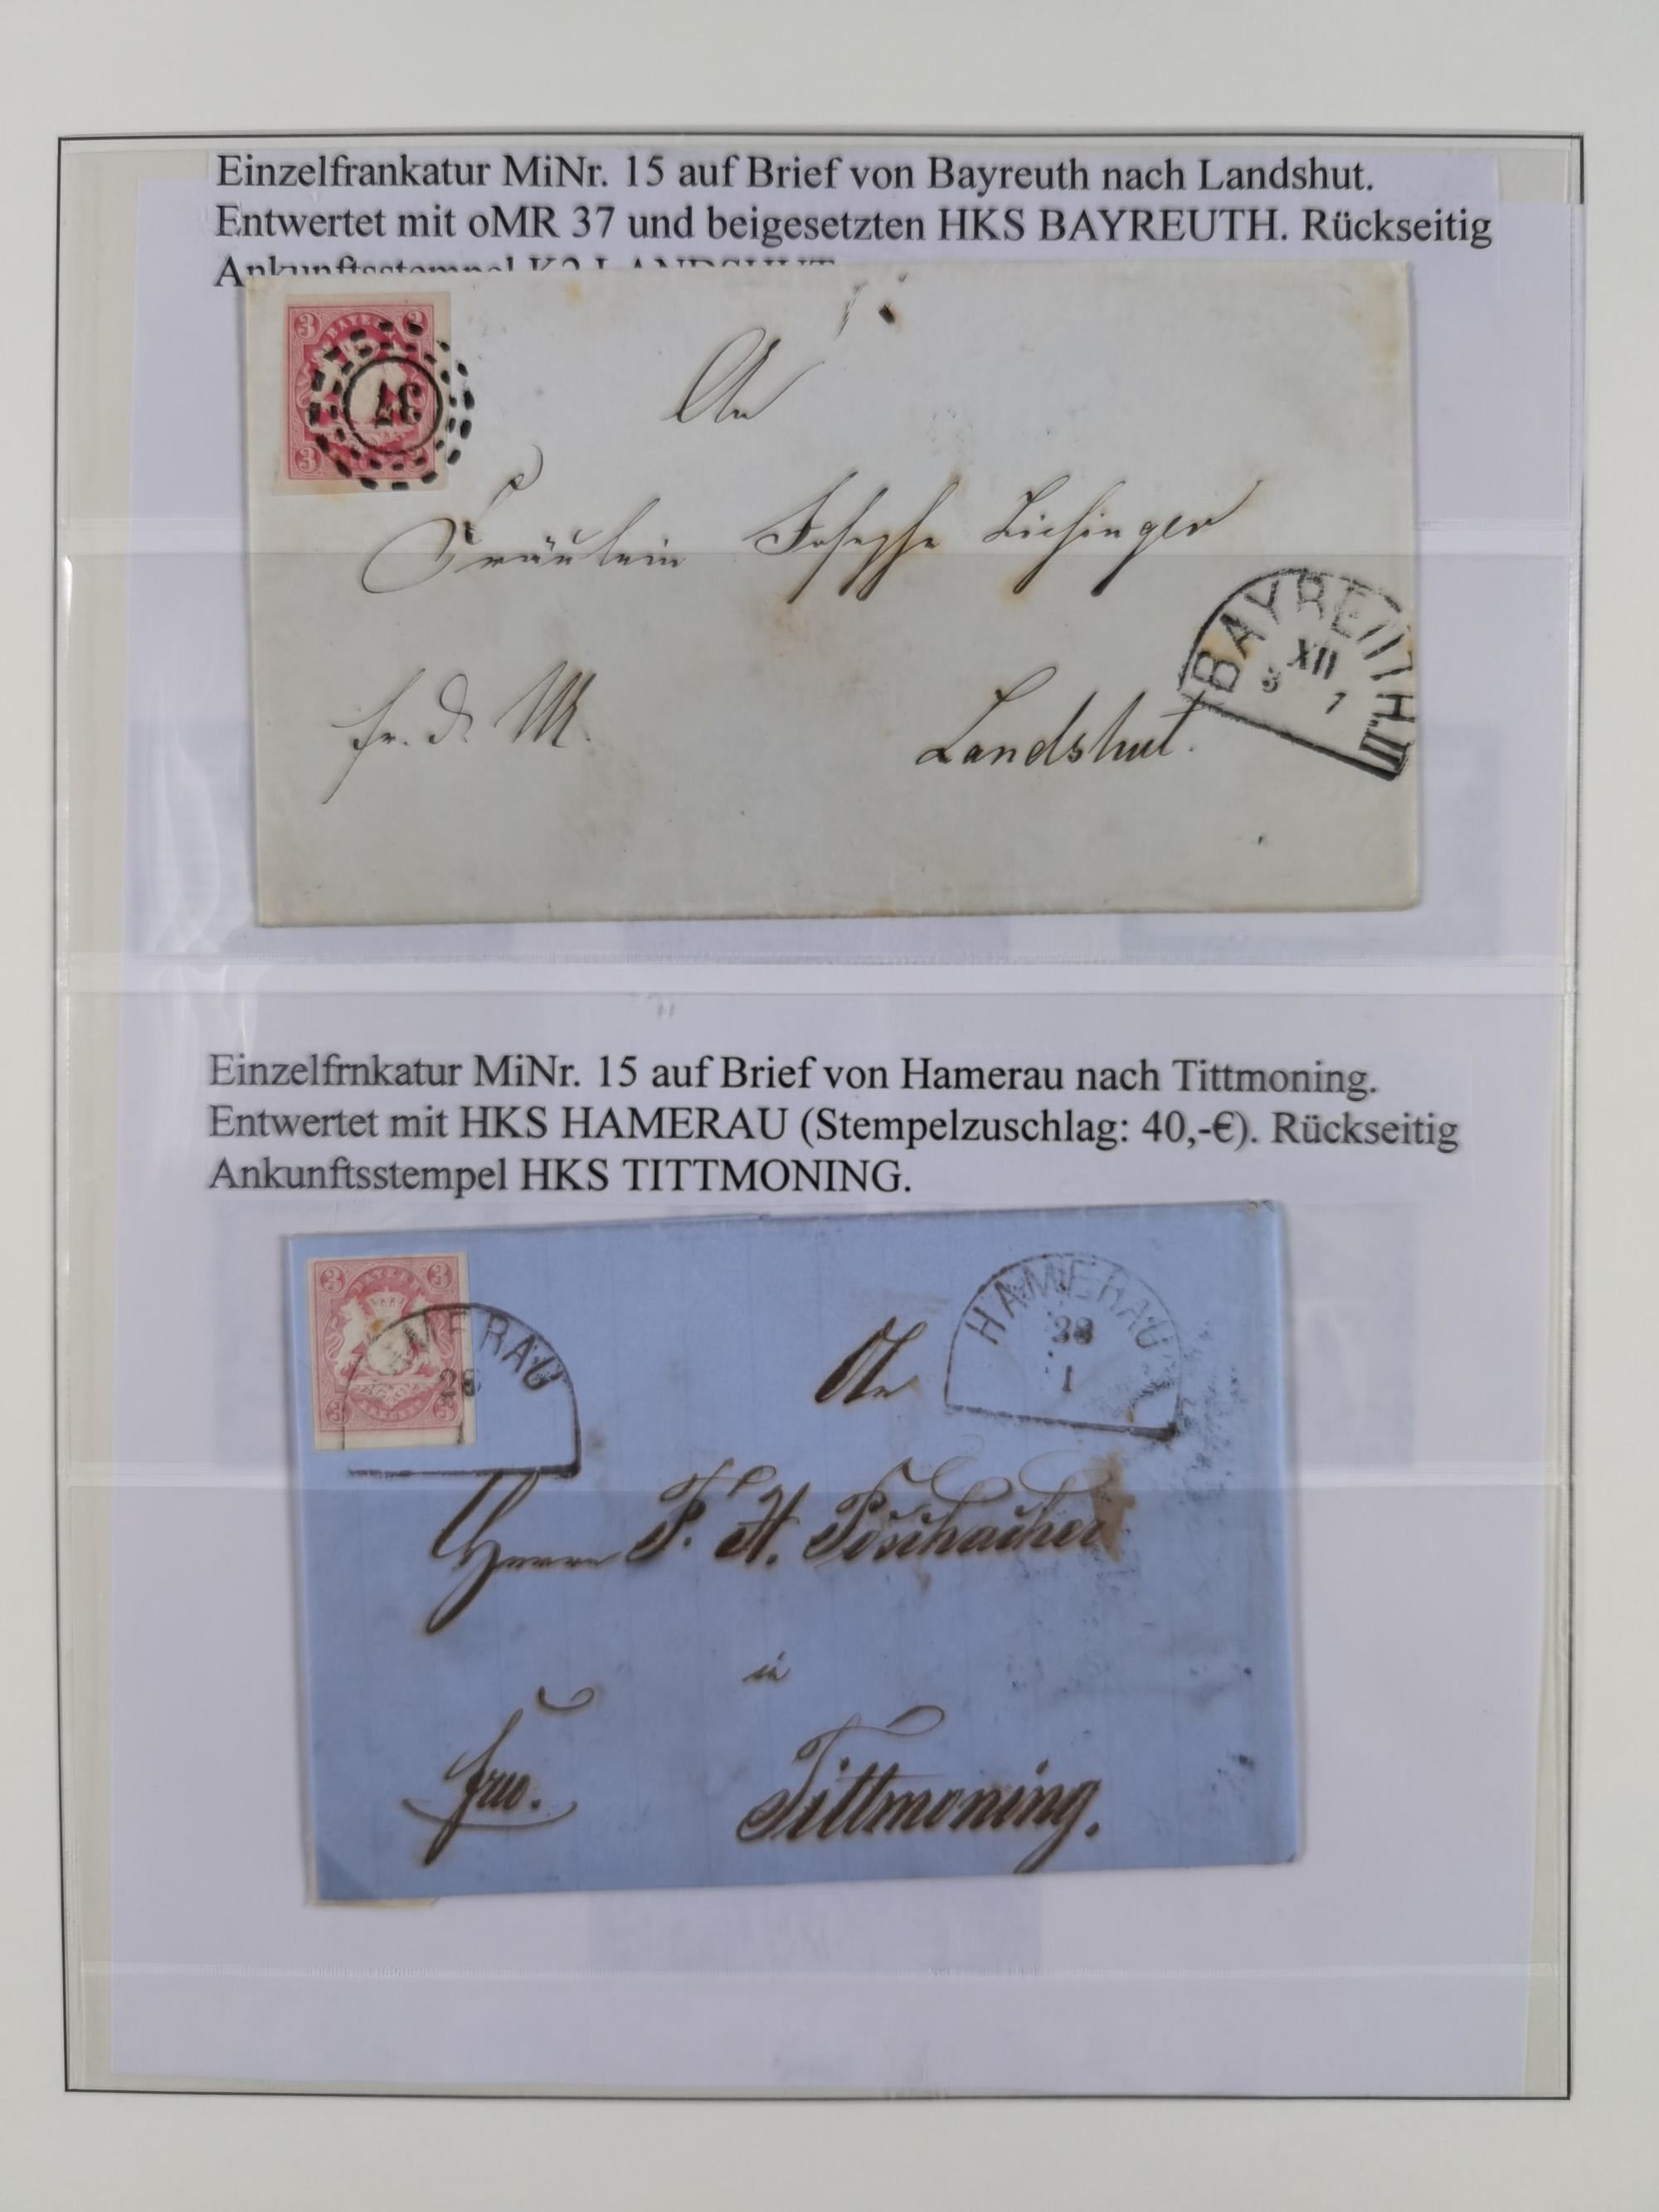 Einzelfrankatur MiNr. 15 auf Brief von Bayreuth nach Landshut.
Entwertet mit oMR 37 und beigesetzten HKS BAYREUTH. Rückseitig
Ankunftsstempel K2 LANDSHUT
3 BAYERN 3
37
3
An
Fräulein Josephe Lichinger
BAYREUTH.III
XII
8 1
fr. d. M.
Landshut.
Einzelfrnkatur MiNr. 15 auf Brief von Hamerau nach Tittmoning.
Entwertet mit HKS HAMERAU (Stempelzuschlag: 40,-€). Rückseitig
Ankunftsstempel HKS TITTMONING.
3 BAYERN 3
3 3
AMERAU
28
1
HAMERAU
28
1
An
Herrn F. H.
in
frco.
Tittmoning.